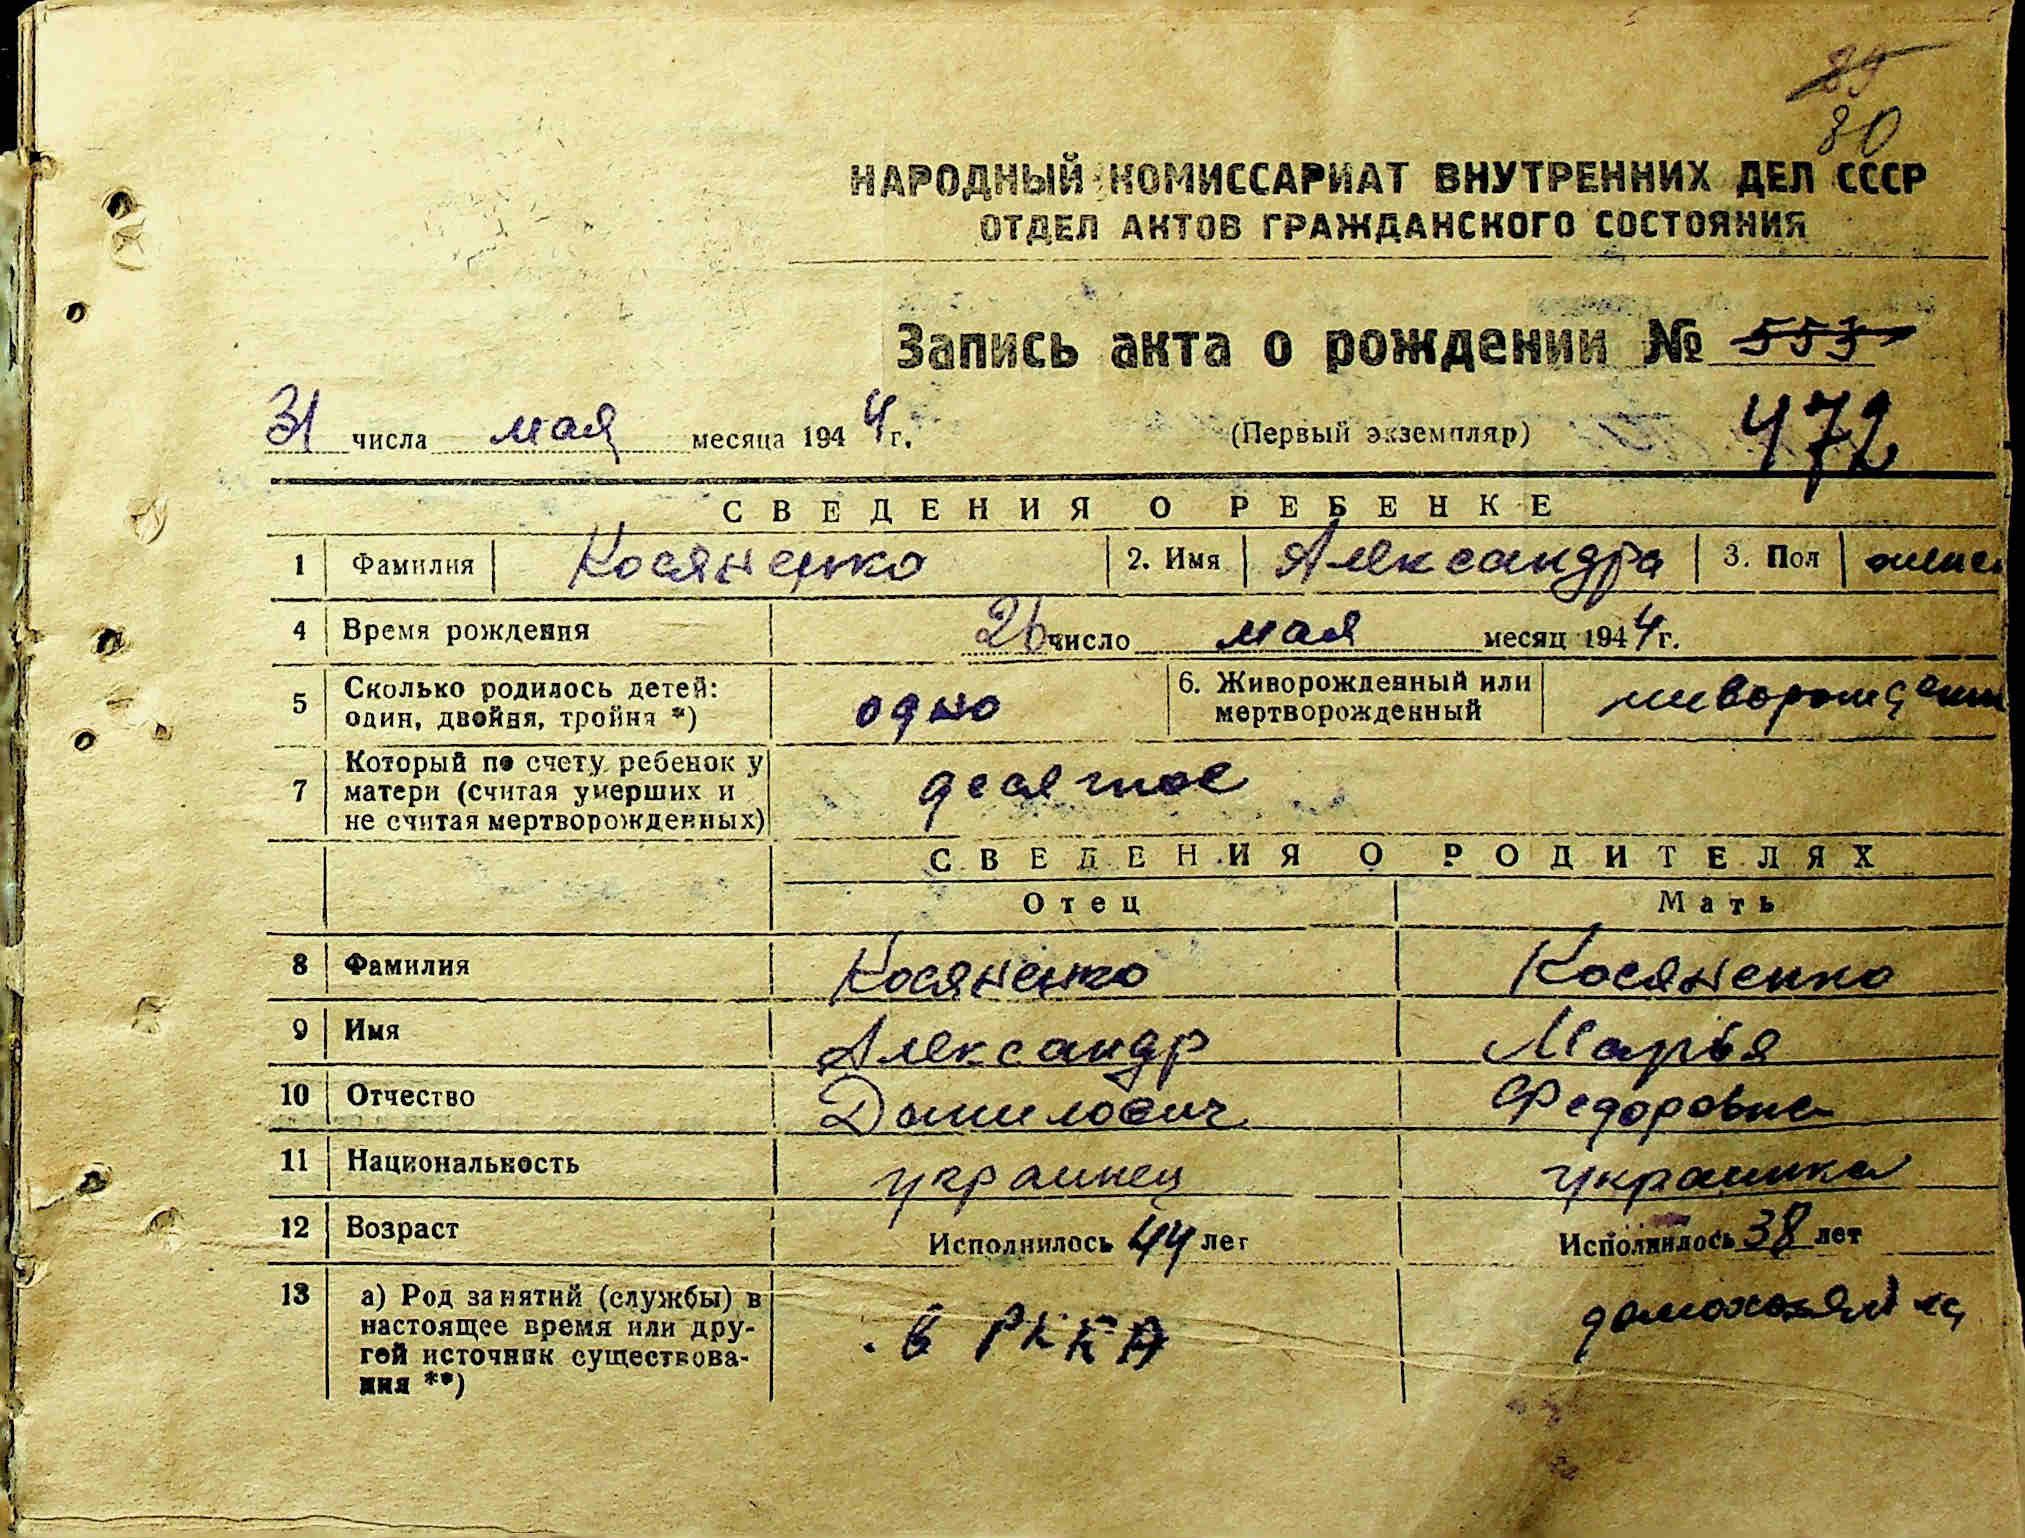 29
80
НАРОДНЫЙ КОМИССАРИАТ ВНУТРЕННИХ ДЕЛ СССР
ОТДЕЛ АКТОВ ГРАЖДАНСКОГО СОСТОЯНИЯ
Запись акта о рождении № 553
31 числа мая месяца 1944 г. (Первый экземпляр) 472
СВЕДЕНИЯ О РЕБЕНКЕ
1 Фамилия Косяненко 2. Имя Александра 3. Пол женск
4 Время рождения 26 число мая месяц 1944 г.
5 Сколько родилось детей: один, двойня, тройня *) одно 6. Живорожденный или мертворожденный живорожденн
7 Который по счету ребенок у матери (считая умерших и не считая мертворожденных) десятое
СВЕДЕНИЯ О РОДИТЕЛЯХ
Отец Мать
8 Фамилия Косяненко Косяненко
9 Имя Александр Марья
10 Отчество Данилович Федоровна
11 Национальность украинец украинка
12 Возраст Исполнилось 44 лет Исполнилось 38 лет
13 а) Род занятий (службы) в настоящее время или другой источник существования **) в РККА домохозяйка